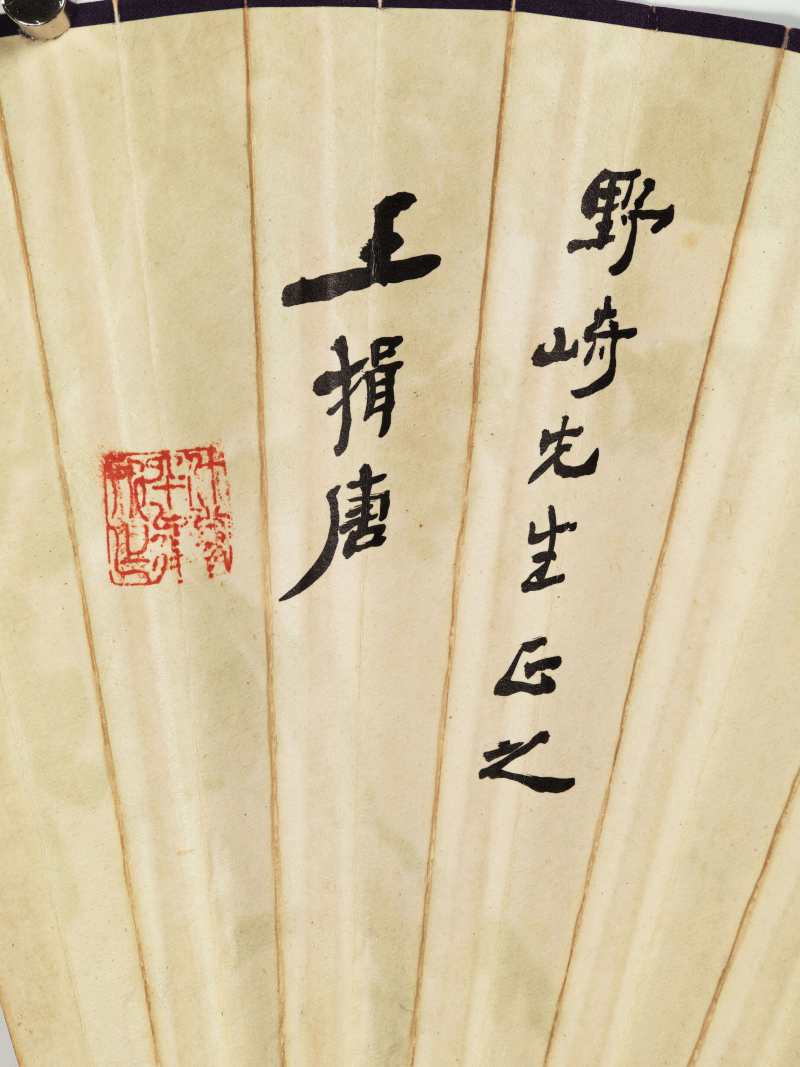 野崎先生正之
王揖唐